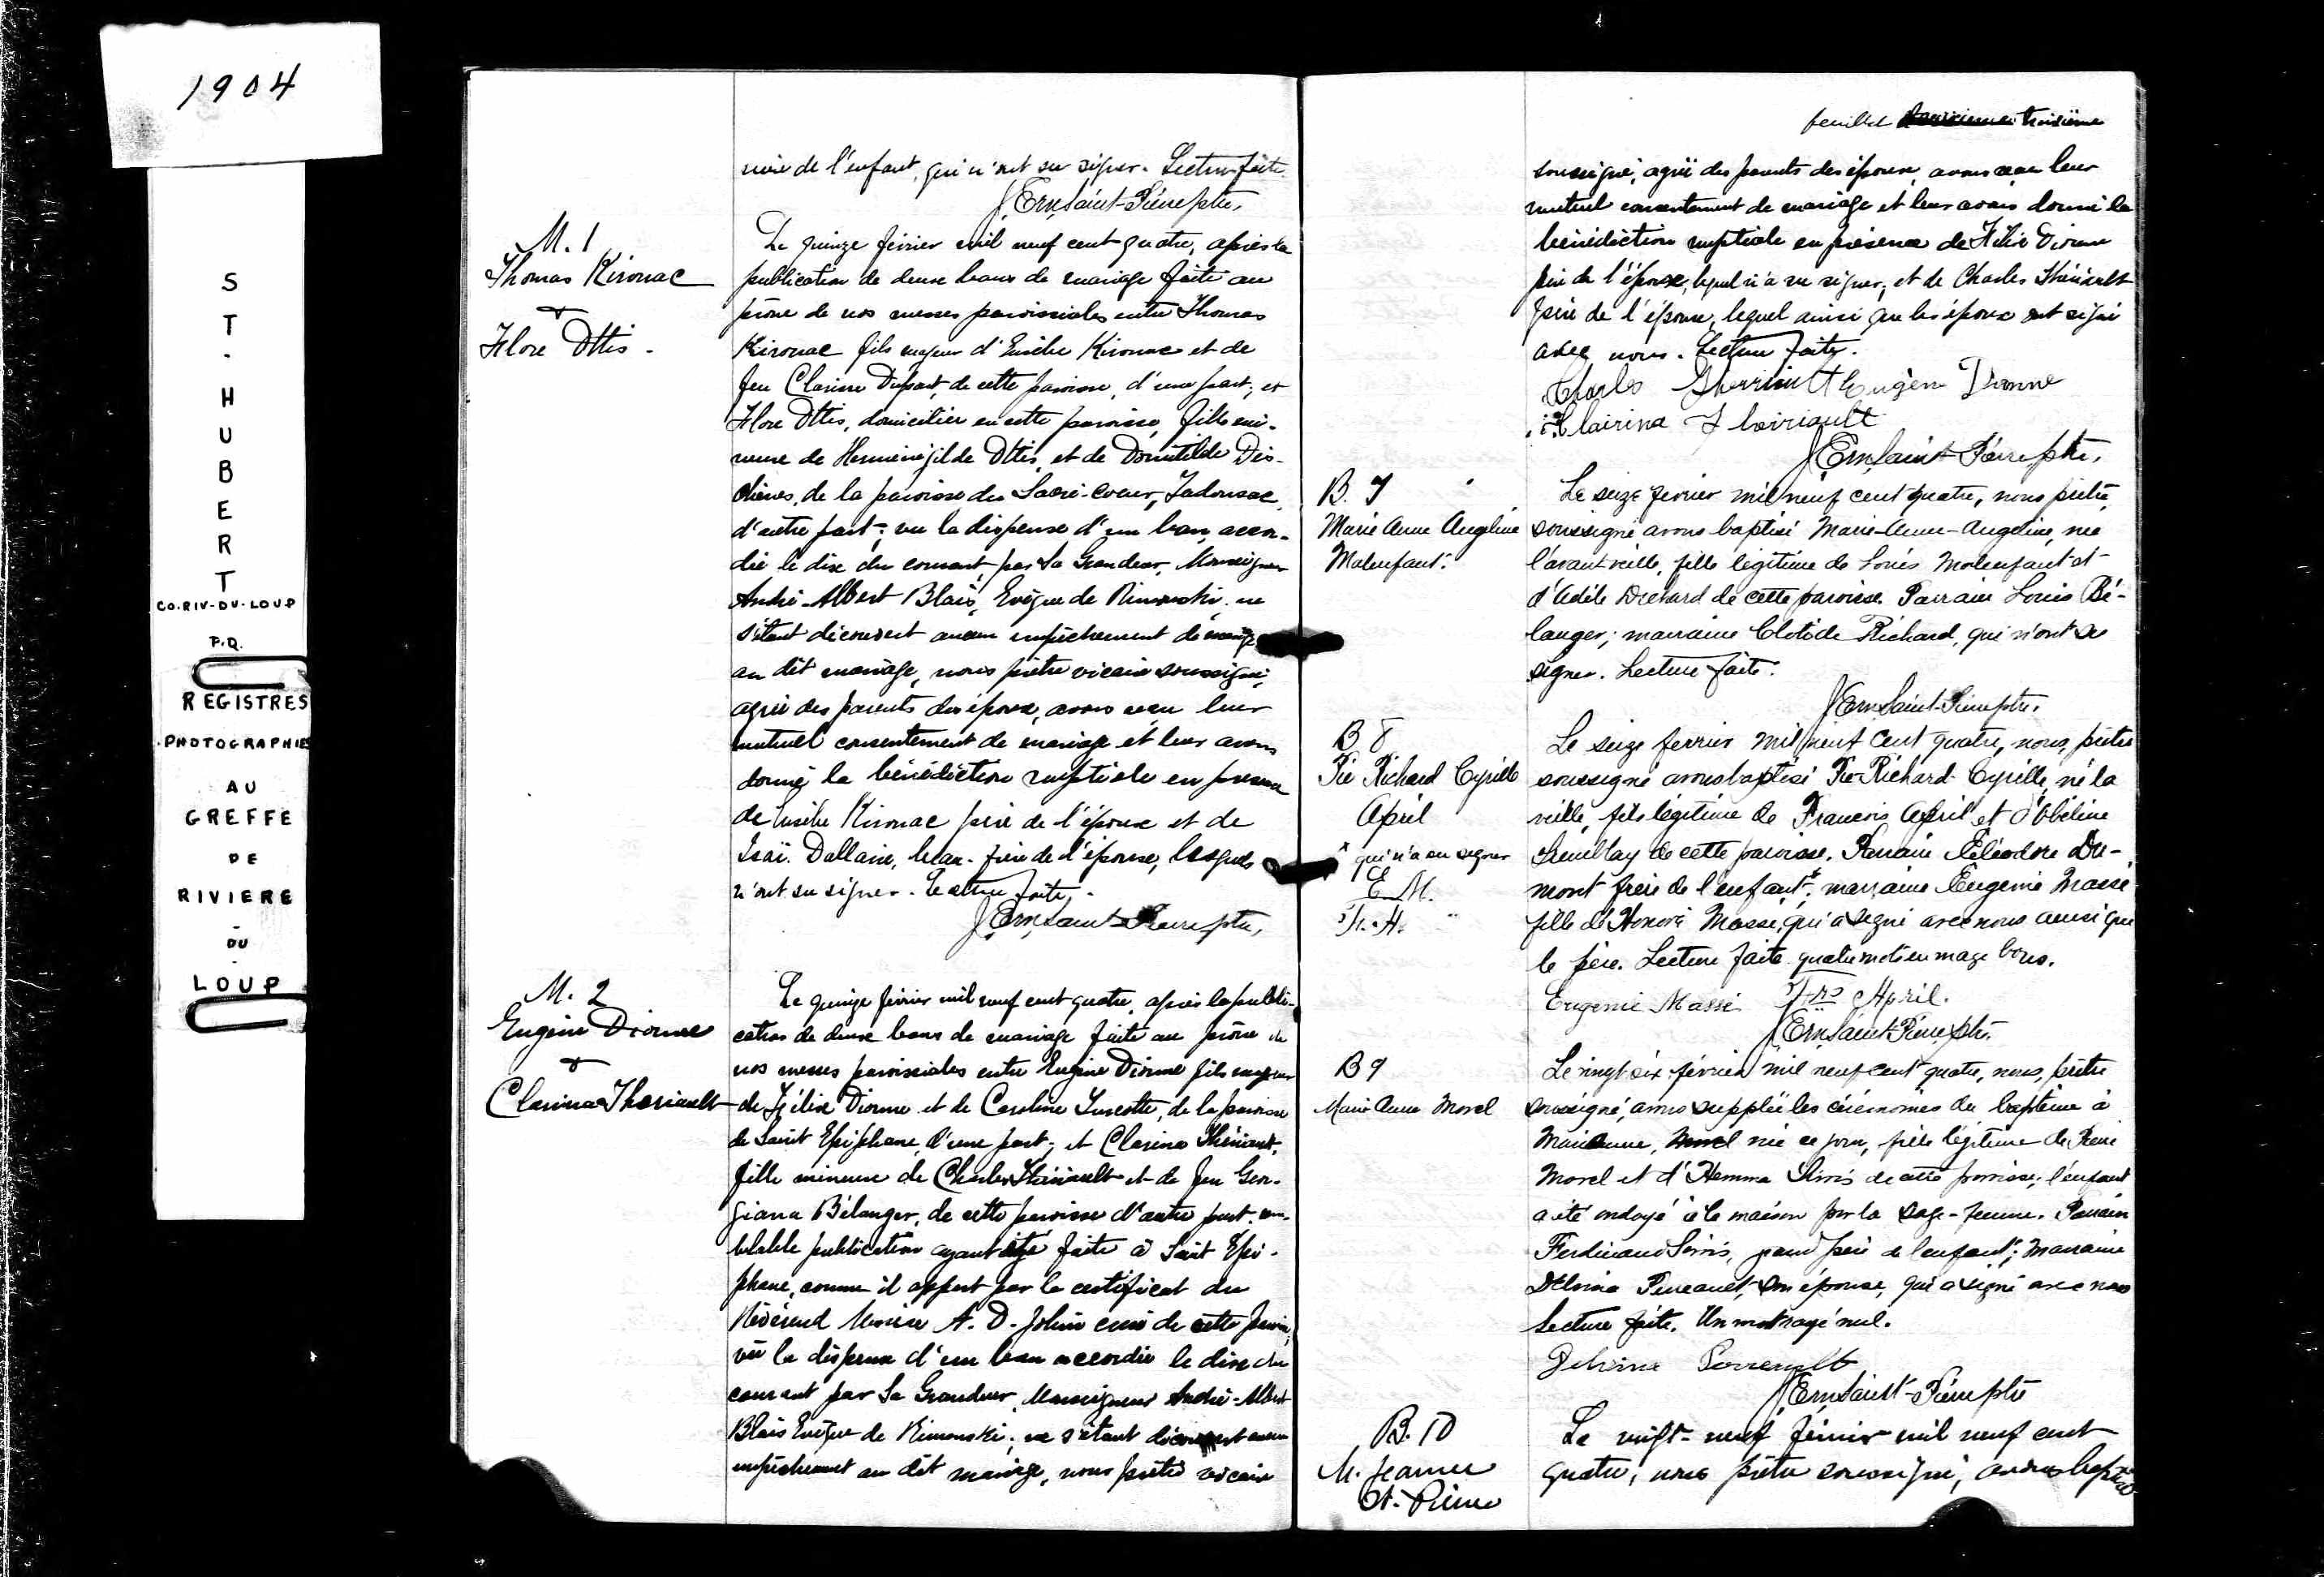 1904
ST-HUBERT
CO-RIV-DU-LOUP
P.Q.
REGISTRES
PHOTOGRAPHIE
AU
GREFFE
DE
RIVIERE
-
DU
-
LOUP
de l'enfant, qui n'ont su signer. Lecture faite.
J Ern Saint-Pierre ptre,
M. 1
Thomas Kirouac
&
Flore Ottis.
Le quinze février mil neuf cent quatre, après la
publication de deux bans de mariage faite au
prône de nos messes paroissiales entre Thomas
Kirouac fils majeur d'Eusèbe Kirouac et de
feu Clarisse Dupont, de cette paroisse, d'une part; et
Flore Ottis, domiciliée en cette paroisse, fille mi-
neure de Herménégilde Ottis, et de Domitilde Des-
chênes, de la paroisse du Sacré-Coeur, Tadousac,
d'autre part; vu la dispense d'un ban accor-
dée le dix du courant par Sa Grandeur, Monseigneur
André-Albert Blais, Evêque de Rimouski. ne
s'étant découvert aucun empêchement
au dit mariage, nous prêtre vicaire soussigné,
agréé des parents des époux, avons reçu leur
mutuel consentement de mariage et leur avons
donné la bénédiction nuptiale en présence
de Eusèbe Kirouac père de l'époux et de
Isaï Dallaire, beau-frère de l'épouse, lesquels
n'ont su signer. Lecture faite.
J Ern Saint-Pierre ptre,
M. 2
Eugène Dionne
&
Clarina Theriault
Le quinze février mil neuf cent quatre, après la publi-
cation de deux bans de mariage faite au prône de
nos messes paroissiales entre Eugène Dionne fils majeur
de Félix Dionne et de Caroline Turcotte, de la paroisse
de Saint Epiphane, d'une part; et Clarina Thériault,
fille mineure de Charles Thériault et de feu Geor-
giana Bélanger, de cette paroisse d'autre part. sem-
blable publication ayant été faite à Saint Epi-
phane, comme il appert par le certificat du
Révérend Messire A. D. curé de cette paroisse,
vu la dispense d'un ban accordée le dix du
courant par Sa Grandeur, Monseigneur André-Albert
Blais Evêque de Rimouski; ne s'étant découvert aucun
empêchement au dit mariage, nous prêtre vicaire
feuillet troisième
soussigné, agréé des parents des époux, avons reçu leur
mutuel consentement de mariage et leur avons donné la
bénédiction nuptiale en présence de Félix Dionne
père de l'époux, lequel n'a su signer; et de Charles Thériault
père de l'épouse, lequel ainsi que les époux ont signé
avec nous. Lecture faite.
Charles Therriault Eugène Dionne
Clairina Therriault
J Ern Saint-Pierre ptre,
B. 7
Marie Anne Angeline
Malenfant.
Le seize février mil neuf cent quatre, nous prêtre,
soussigné avons baptisé Marie-Anne-Angeline, née
l'avant veille, fille légitime de Louis Malenfant et
d'Adèle Richard de cette paroisse. Parrain Louis Bé-
langer; marraine Clotide Richard, qui n'ont su
signer. Lecture faite.
J Ern Saint-Pierre ptre.
B 8
Pie Richard Cyrille
April
* qui n'a su signer
E M.
F. A.
Le seize fevrier mil neuf cent quatre, nous, prêtre
soussigné avons baptisé Pie-Richard-Cyrille, né la
veille, fils légitime de Francois April et d'Obéline
Tremblay de cette paroisse. Parrain Éléodore Du-
mont frère de l'enfant*; marraine Eugenie Massé
fille de Honoré Massé, qui a signé avec nous ainsi que
le père. Lecture faite. quatre mots en marge bons.
Eugenie Massé Frs April.
J Ern Saint-Pierre ptre.
B 9
Marie Anne Morel
Le vingt six février mil neuf cent quatre, nous, prêtre
soussigné, avons suppléé les cérémonies du baptême à
Marie Anne, née ce jour, fille légitime de Pierre
Morel et d'Hemma Sirois de cette paroisse; l'enfant
a été ondoyé à la maison par la sage-femme. Parrain
Ferdinand Sirois, grand père de l'enfant; marraine
Delvina son épouse, qui a signé avec nous
Lecture faite. Un mot rayé nul.
Delvina Perreault
J Ern Saint-Pierre ptre
B. 10
M. Jeanne
St. Pierre
Le vingt-neuf février mil neuf cent
quatre, nous prêtre soussigné, avons baptisé